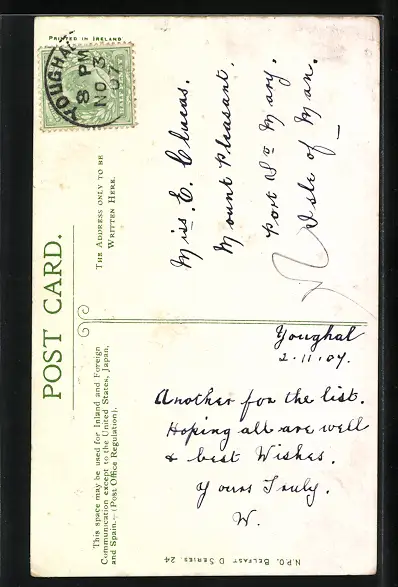 PRINTED IN IRELAND
YOUGHAL
8 PM
NO 3
07
POST CARD.
THE ADDRESS ONLY TO BE
WRITTEN HERE.
Miss. E. Clucas.
Mount Pleasant.
Port St Mary.
Isle of Man.
This space may be used for Inland and Foreign
Communication except to the United States, Japan,
and Spain.—(Post Office Regulation).
Youghal
2.11.07.
Another for the list.
Hoping all are well
& best Wishes.
Yours Truly.
W.
N.P.O. BELFAST D SERIES. 24